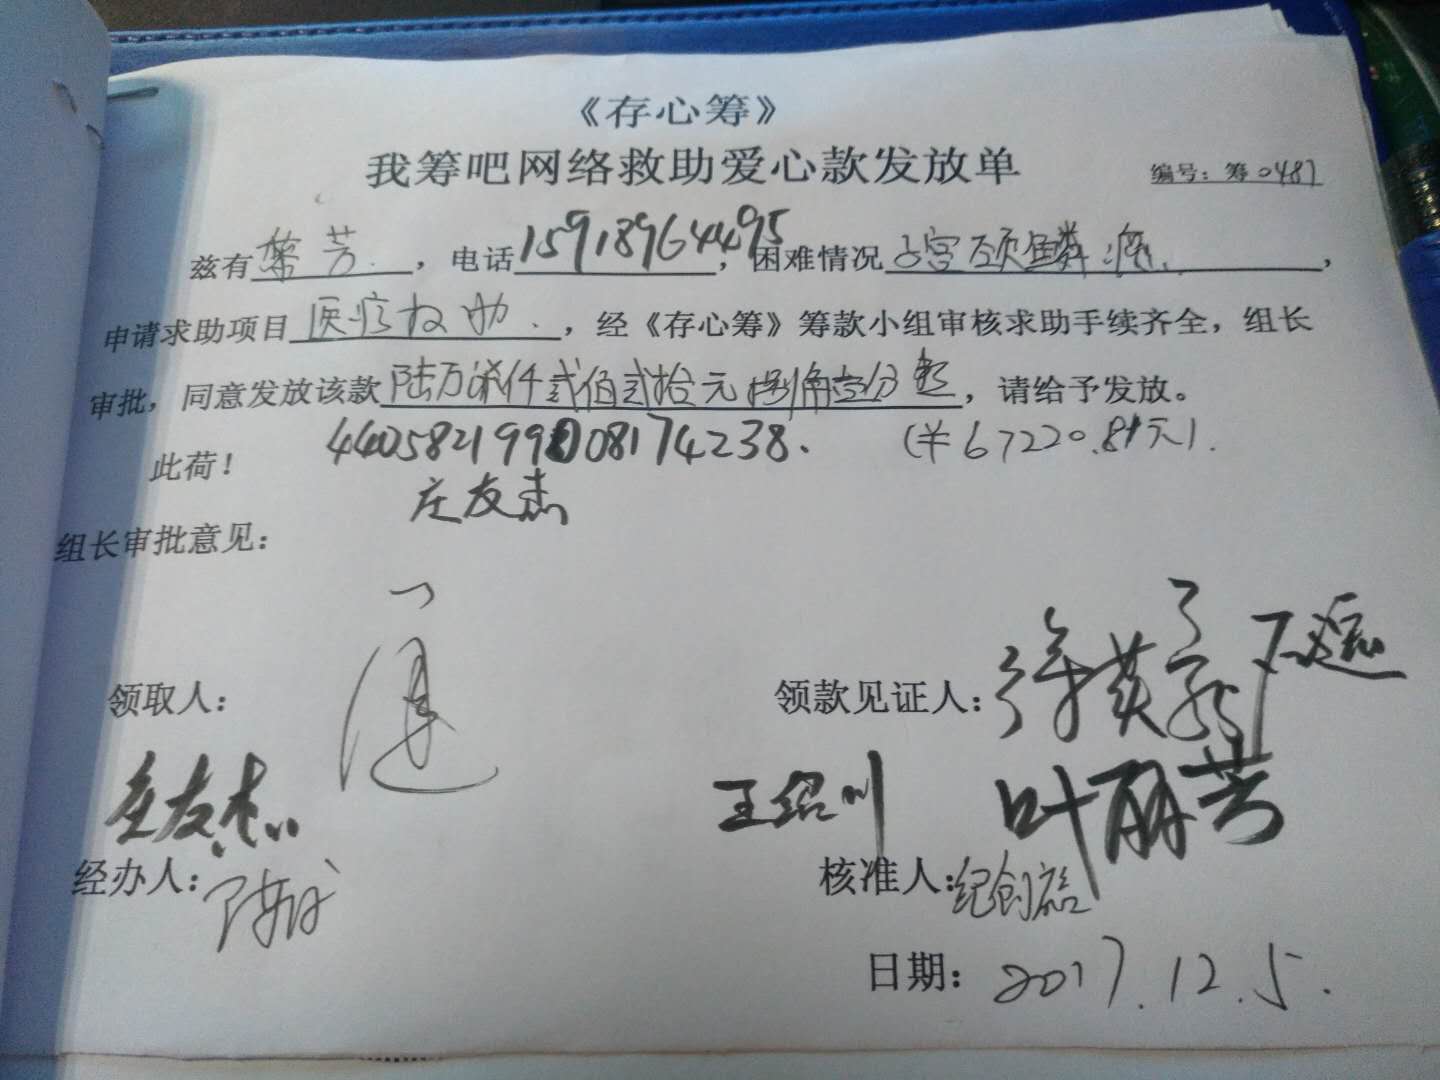 《存心筹》
我筹吧网络救助爱心款发放单
编号：筹0487
兹有 芳，电话15918964495，困难情况子宫颈鳞癌，
申请求助项目医疗救助，经《存心筹》筹款小组审核求助手续齐全，组长
审批，同意发放该款陆万柒仟贰佰贰拾元捌角壹分整，请给予发放。
此荷！
440582199008174238.
(¥67220.81元).
庄友杰
组长审批意见：
领取人：
庄友杰
领款见证人：
王绍川
叶丽芳
经办人：
核准人：纪创磊
日期：2017.12.5.